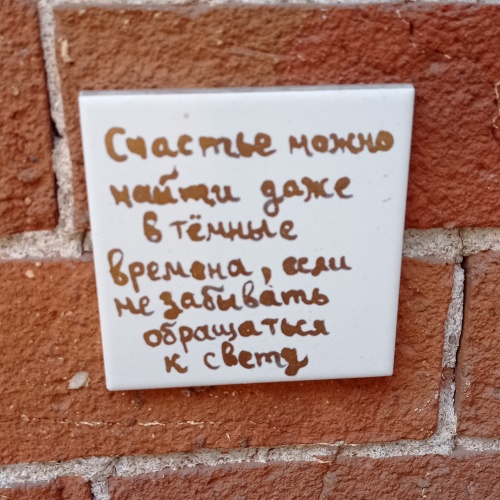 Счастье можно
найти даже
в тёмные
времена, если
не забывать
обращаться
к свету